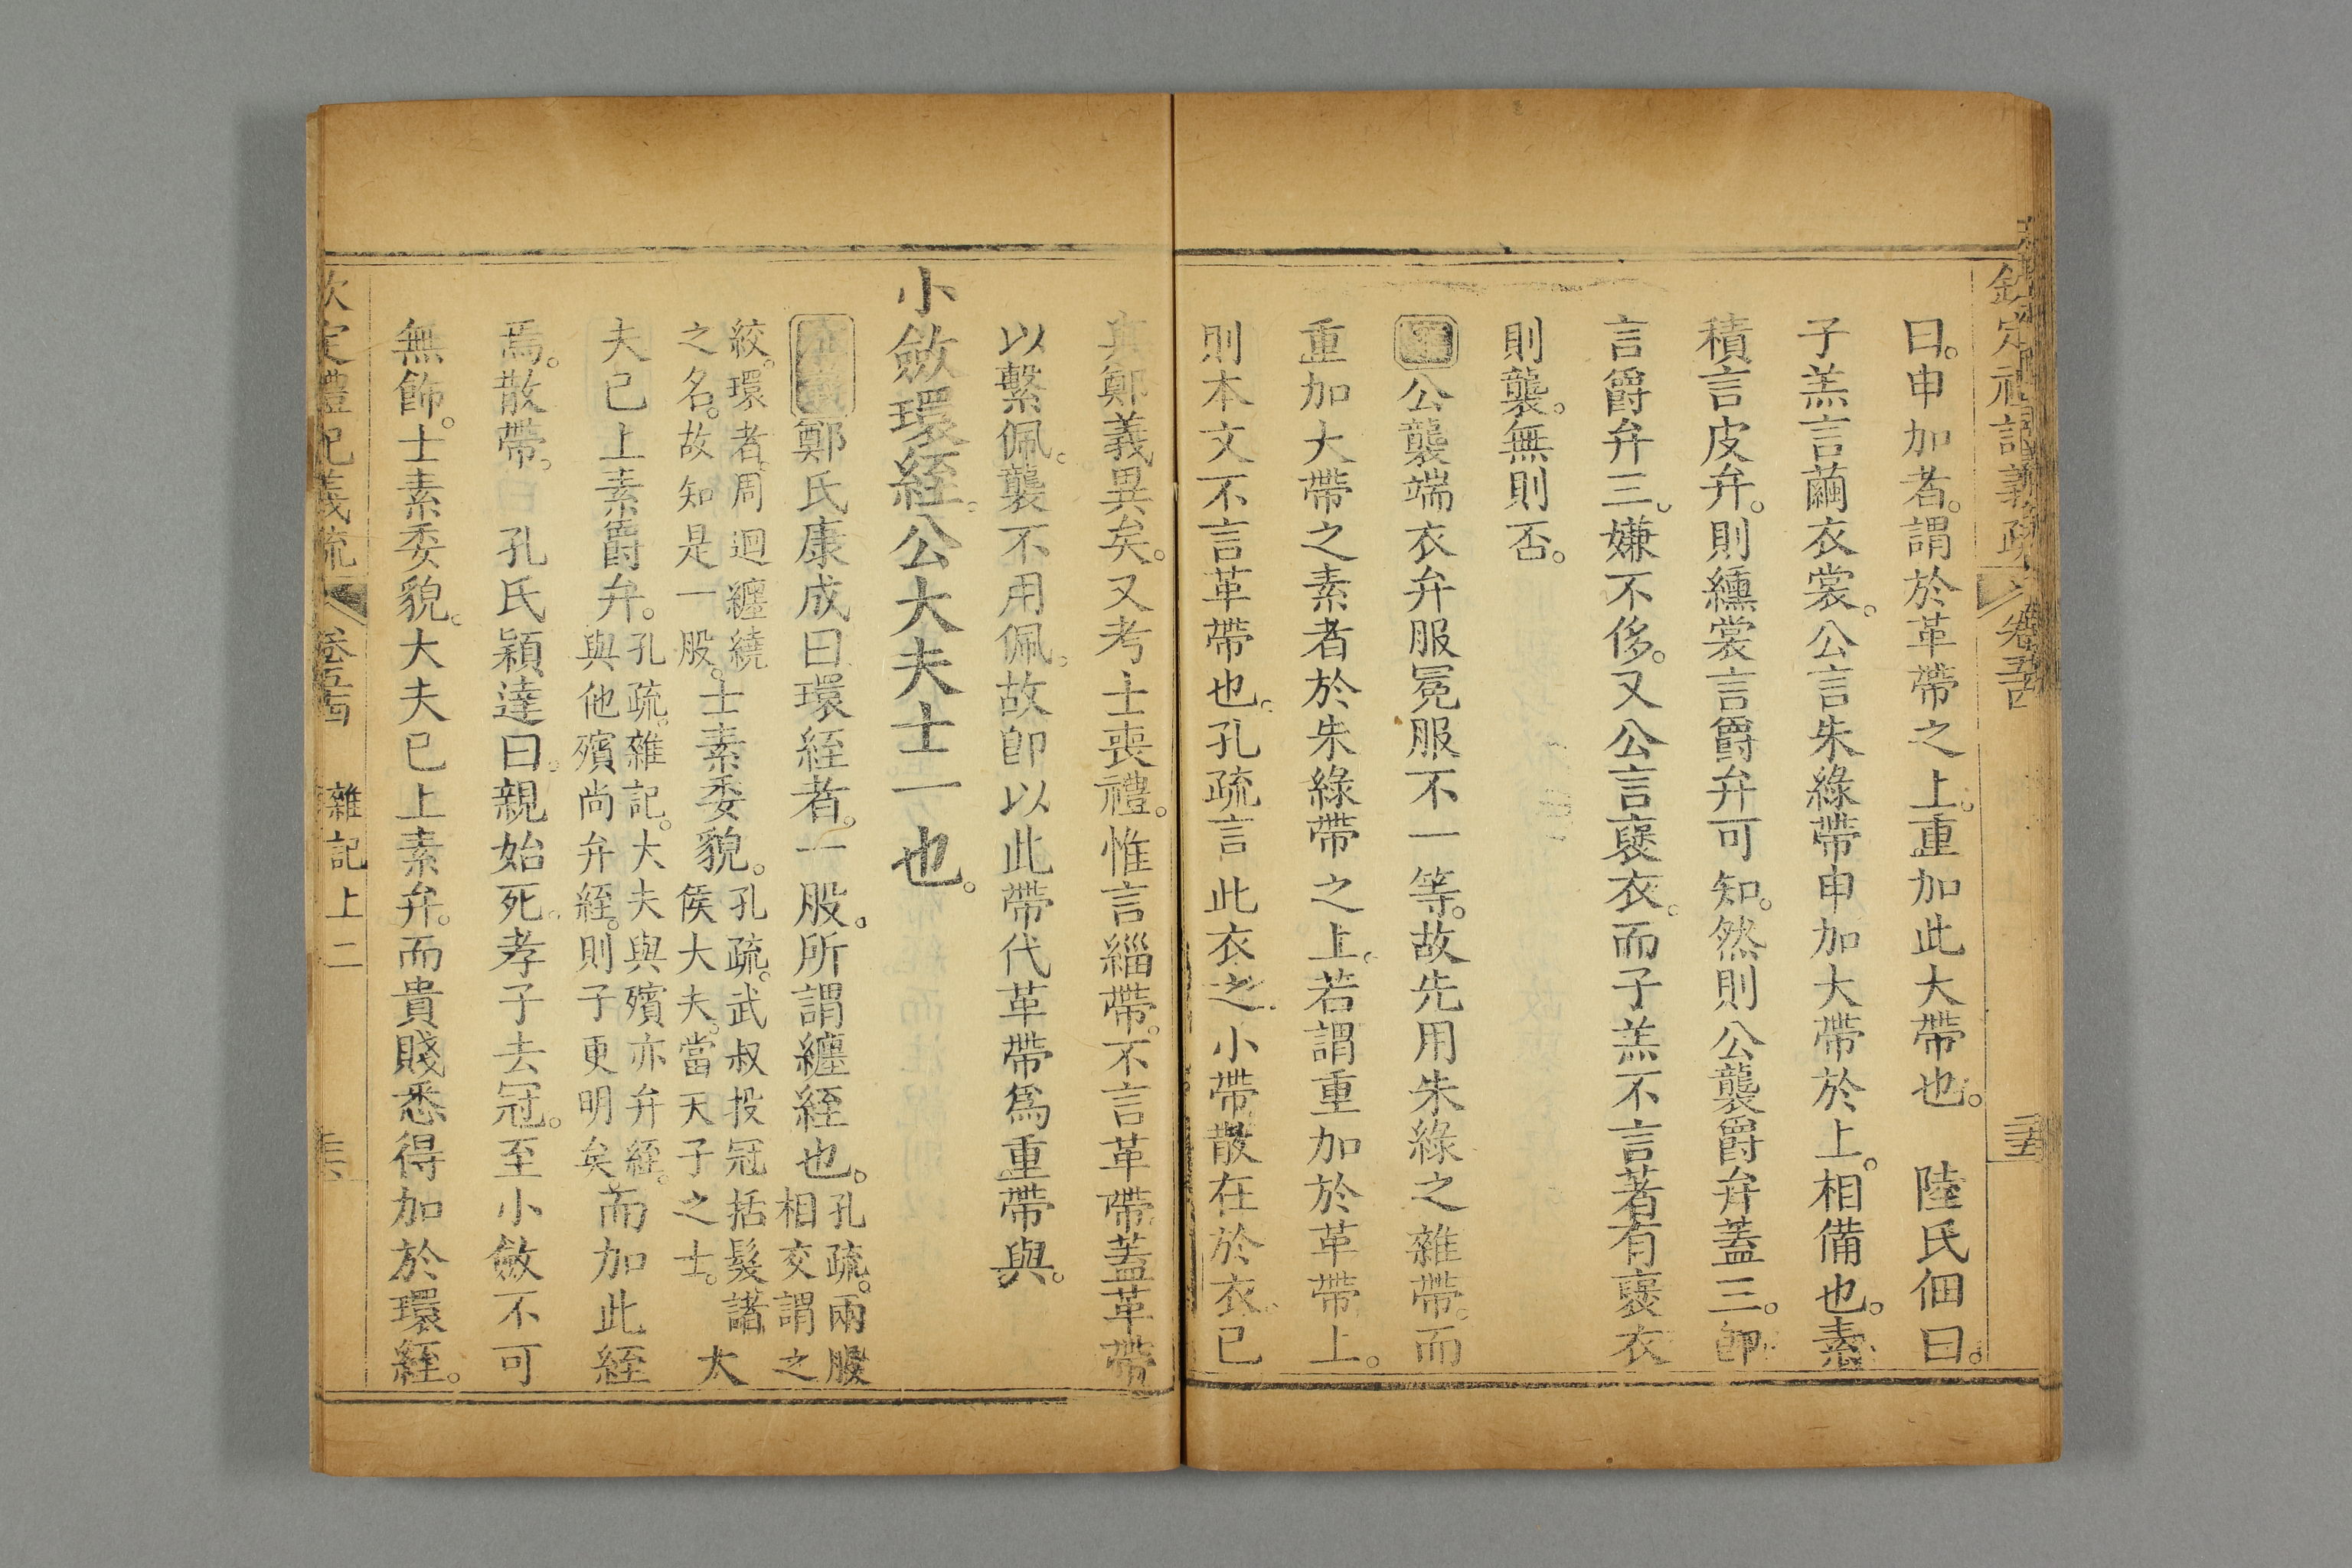 曰。申加者。謂於革帶之上。重加此大帶也。 陸氏佃曰。
子羔言繭衣裳。公言朱綠帶申加大帶於上。相備也。素
積言皮弁。則纁裳言爵弁可知。然則公襲爵弁蓋三。卽
言爵弁三。嫌不侈。又公言襃衣。而子羔不言著有襃衣
則襲。無則否。
公襲端衣弁服冕服不一等。故先用朱綠之雜帶。而
重加大帶之素者於朱綠帶之上。若謂重加於革帶上。
則本文不言革帶也。孔疏言此衣之小帶散在於衣。已
與鄭義異矣。又考士喪禮。惟言緇帶。不言革帶蓋革帶
以繫佩。襲不用佩。故卽以此帶代革帶爲重帶與。
小斂環絰。公大夫士一也。
鄭氏康成曰環絰者。一股。所謂纏絰也。孔疏。兩股相交謂之
絞。環者。周迴纏繞之名。故知是一股。士素委貌。孔疏。武叔投冠括髮諸侯大夫。當天子之士。大
夫已上素爵弁。孔疏。雜記。大夫與殯亦弁絰。與他殯尚弁絰。則子更明矣。而加此絰
焉。散帶。 孔氏穎達曰。親始死。孝子去冠。至小斂不可
無飾。士素委貌。大夫已上素弁。而貴賤悉得加於環絰。
欽定禮記義疏 卷五十四 雜記上二